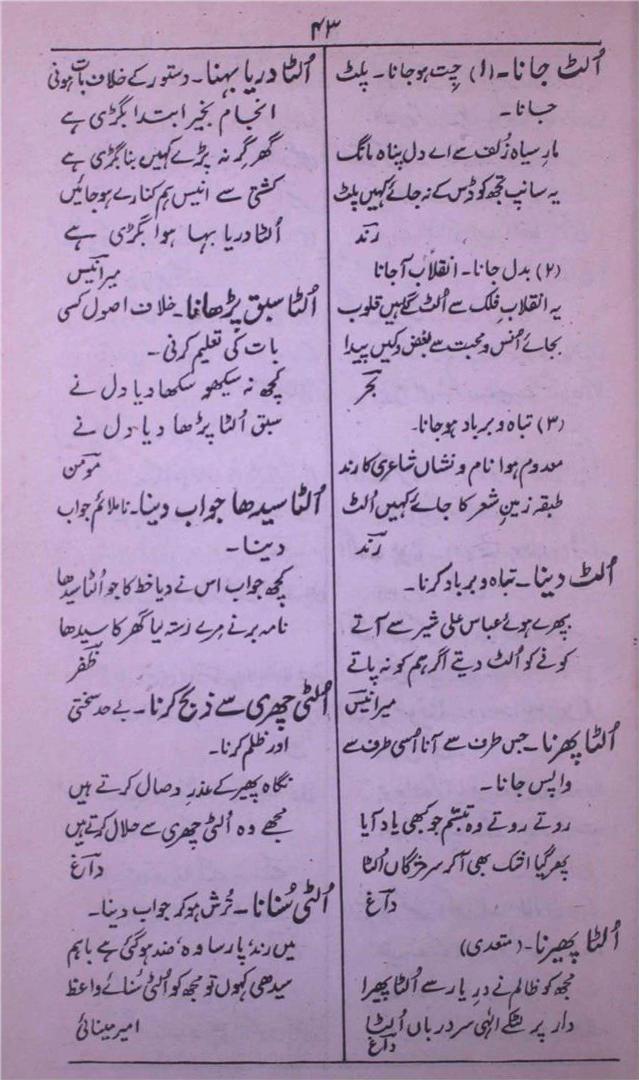 ۴۳
اُلٹ جانا۔ (۱) چِت ہوجانا۔ پلٹ
جانا۔
مارِ سیاہ زُلف سے اے دل پناہ مانگ
یہ سانپ تجھ کو ڈس کے نہ جائے کہیں پلٹ
رندؔ
(۲) بدل جانا۔ انقلاب آجانا
یہ انقلابِ فلک سے اُلٹ گئے ہیں قلوب
بجائے اُنس و محبت سے بغض و کیں پیدا
بحرؔ
(۳) تباہ و برباد ہوجانا۔
معدوم ہوا نام و نشاں شاعری کا رند
طبقہ زمینِ شعر کا جائے کہیں اُلٹ
رندؔ
اُلٹ دینا۔ تباہ و برباد کرنا۔
بپھرے ہوئے عباس علی شیر سے آتے
کوفے کو اُلٹ دیتے اگر ہم کو نہ پاتے
میر انیسؔ
اُلٹا پھرنا۔ جس طرف سے آنا اُسی طرف سے
واپس جانا۔
روتے روتے وہ تبسّم جو کبھی یاد آیا
پھر گیا اشک بھی آکر سرِ مژگاں اُلٹا
داغؔ
اُلٹا پھیرنا۔ (متعدی)
مجھ کو ظالم نے درِ یار سے اُلٹا پھیرا
دار پر لٹکے الٰہی سرِ درباں اُلٹا
داغؔ
اُلٹا دریا بہنا۔ دستور کے خلاف بات ہونی
انجام بخیر ابتدا بگڑی ہے
گھر گر نہ پڑے کہیں بنا بگڑی ہے
کشتی سے انیس ہم کنارے ہوجائیں
اُلٹا دریا بہا ہوا بگڑی ہے
میر انیسؔ
اُلٹا سبق پڑھانا۔ خلاف اصول کسی
بات کی تعلیم کرنی۔
کچھ نہ سیکھو سکھا دیا دل نے
سبق اُلٹا پڑھا دیا دل نے
مومنؔ
اُلٹا سیدھا جواب دینا۔ ناملائم جواب
دینا۔
کچھ جواب اس نے دیا خط کا جو اُلٹا سیدھا
نامہ بر نے مرے رستہ لیا گھر کا سیدھا
ظفرؔ
اُلٹی چھری سے ذبح کرنا۔ بے حد سختی
اور ظلم کرنا۔
نگاہ پھیر کے عذرِ وصال کرتے ہیں
مجھے وہ اُلٹی چھری سے حلال کرتے ہیں
داغؔ
اُلٹی سُنانا۔ تُرش ہوکر جواب دینا۔
میں رند، پارسا وہ، ضد ہوگئی ہے باہم
سیدھی کہوں تو مجھ کو اُلٹی سُنائے واعظ
امیر مینائی